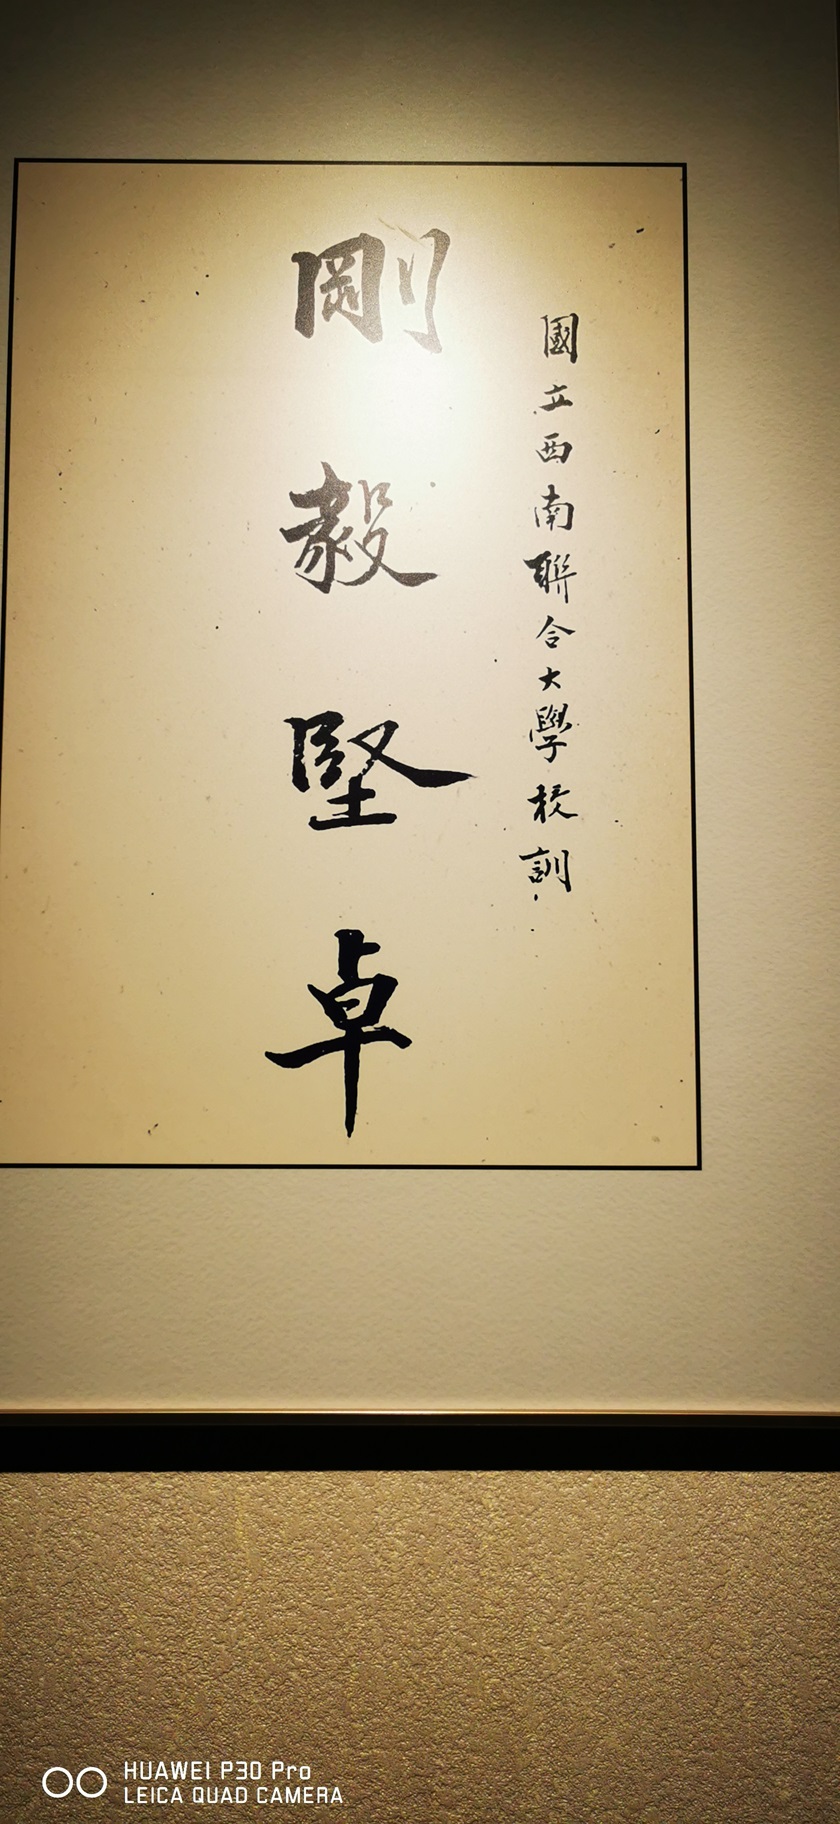 國立西南聯合大學校訓
剛毅堅卓
HUAWEI P30 Pro
LEICA QUAD CAMERA